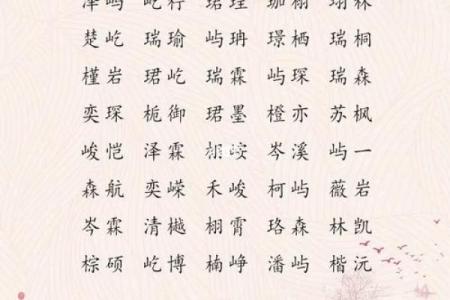 泽屿 屹柠 珺瑝 珈栩 珝霖
楚屹 瑞瑜 屿珃 璟栖 瑞桐
槿岩 珺屹 瑞霖 屿琛 瑞森
奕琛 栀御 珺墨 橙亦 苏枫
峻恺 泽霖 栩峖 岑溪 屿一
森航 奕嵘 禾峻 柯屿 薇岩
岑霖 清樾 栩霄 珞森 林凯
棕硕 屹博 楠峥 潘屿 楷沅